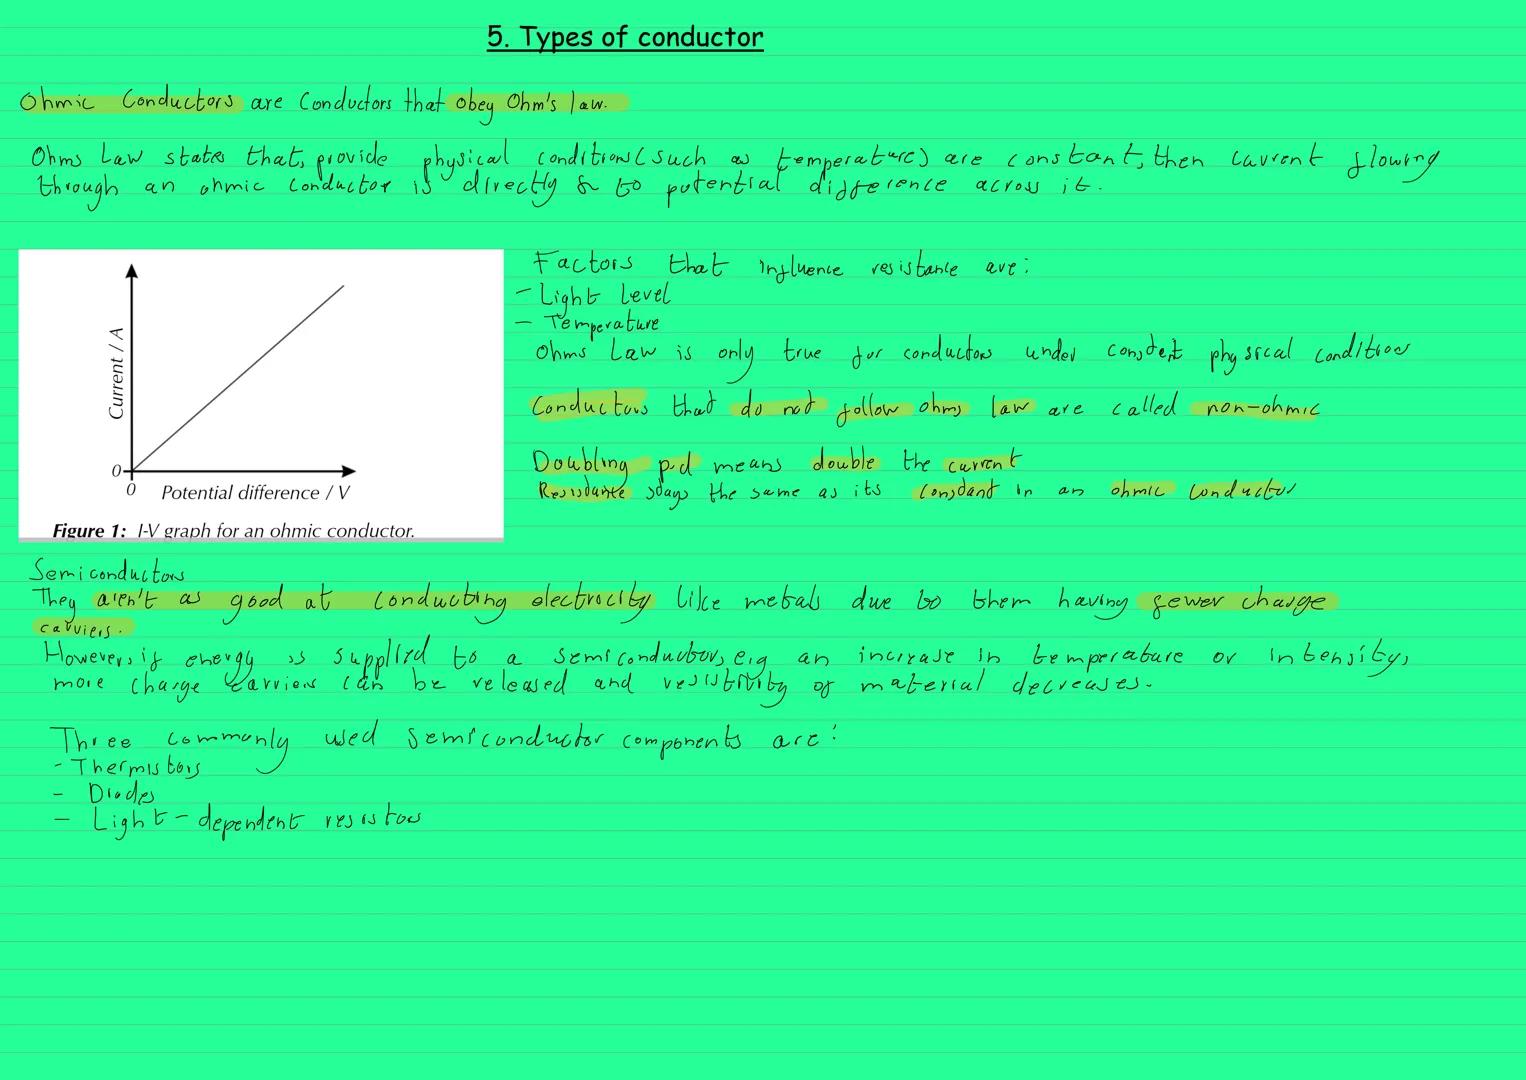 5. Types of conductor
Ohmic Conductors are Conductors that obey Ohm's law.
Ohms Law states that, provide physical conditions (such as temperature) are constant, then current flowing
through an ohmic conductor is directly ∝ to potential difference across it.
Current / A
0
0
Potential difference / V
Figure 1: I-V graph for an ohmic conductor.
Factors that influence resistance are:
- Light Level
- Temperature
Ohms Law is only true for conductors under constent physical conditions
Conductors that do not follow ohms law are called non-ohmic
Doubling p.d means double the current
Resistance stays the same as its constant in an ohmic conductor
Semiconductors
They aren't as good at conducting electrocity like metals due to them having fewer charge
carriers.
However, if energy is supplied to a semiconductor, e.g an increase in temperature or intensity,
more charge carriers can be released and resistivity of material decreases.
Three commonly used semiconductor components are:
- Thermistors
- Diodes
- Light-dependent resistors